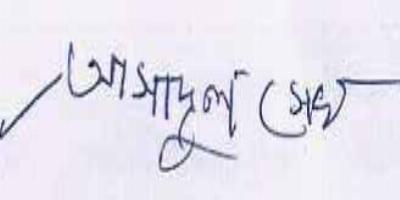 আসাদুল সেখ